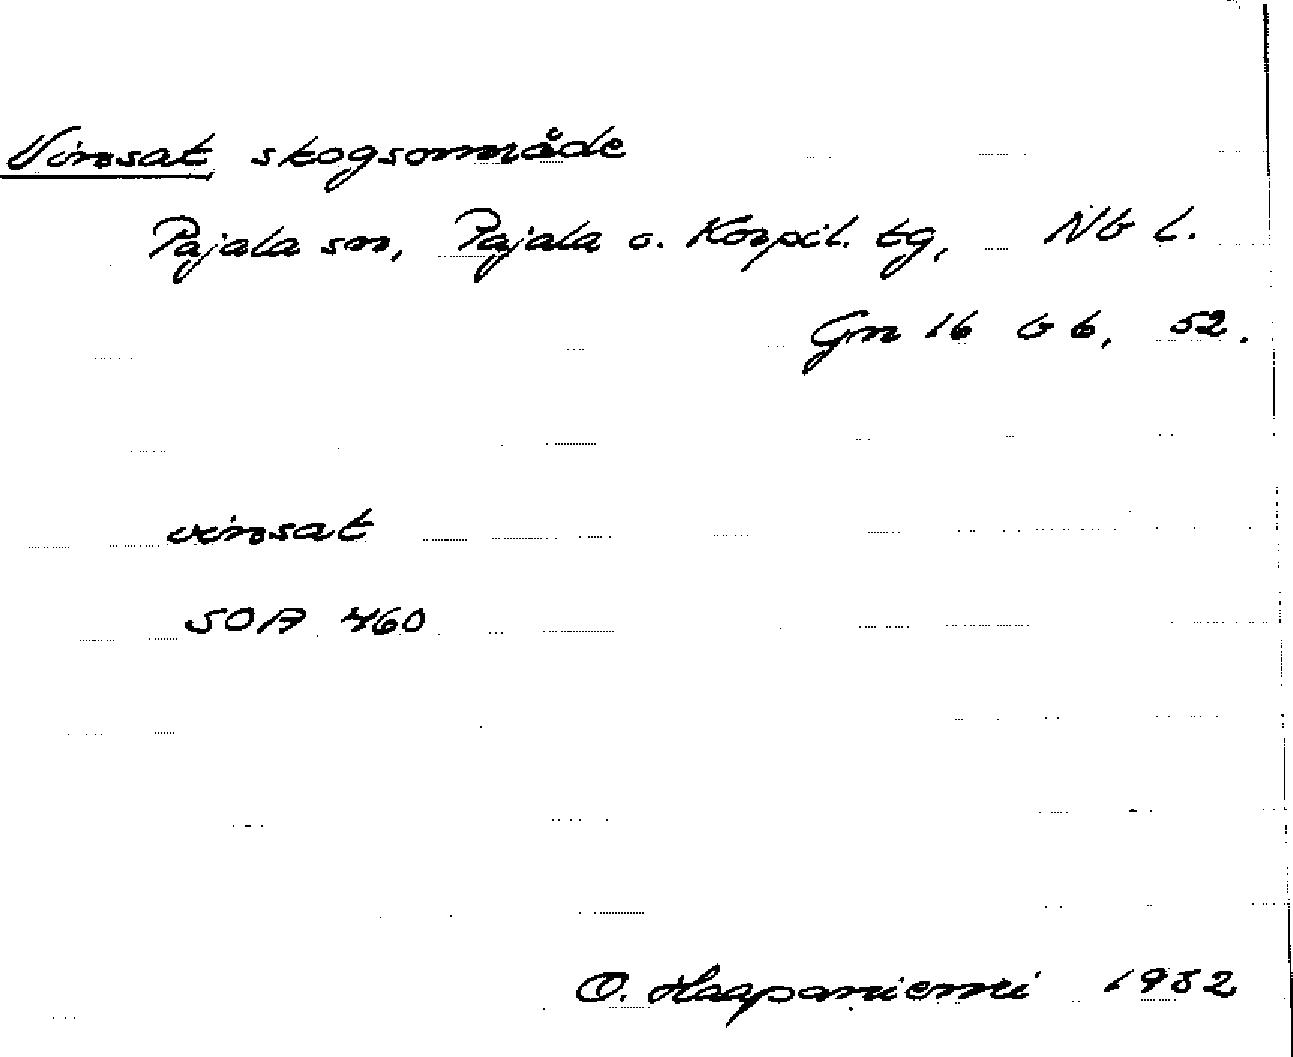 Vinsat skogsområde
Pajala sn, Pajala o. Korpil. tg, Nb l.
Gn 16 b 6, 52.
vinsat
SOA 460
O. Haapaniemi 1952